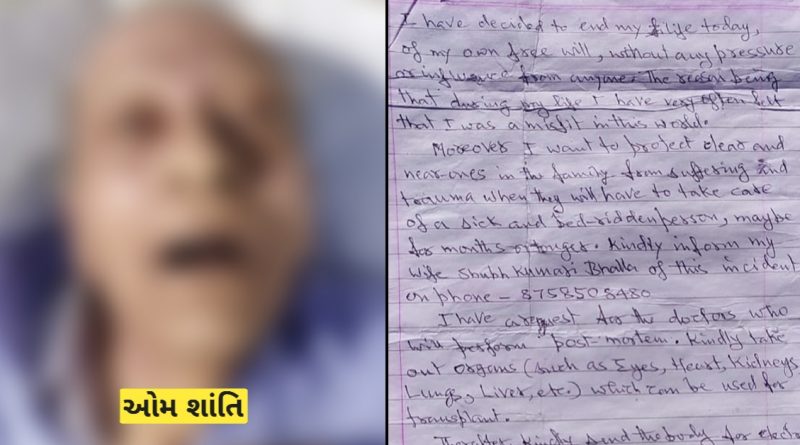 I have decided to end my life today,
of my own free will, without any pressure
or influence from anyone. The reason being
that during my life I have very often felt
that I was a misfit in this world.
Moreover I want to project clear and
near-ones in the family from suffering and
trauma when they will have to take care
of a sick and bed-ridden person, maybe
for months or longer. Kindly inform my
wife Shubh Kumari Bhalla of this incident
on phone – 8758508480
I have a request for the doctors who
will perform post-mortem. Kindly take
out organs (such as Eyes, Heart, Kidneys,
Lungs, Liver, etc.) which can be used for
transplant.
kindly send the body for
ઓમ શાંતિ